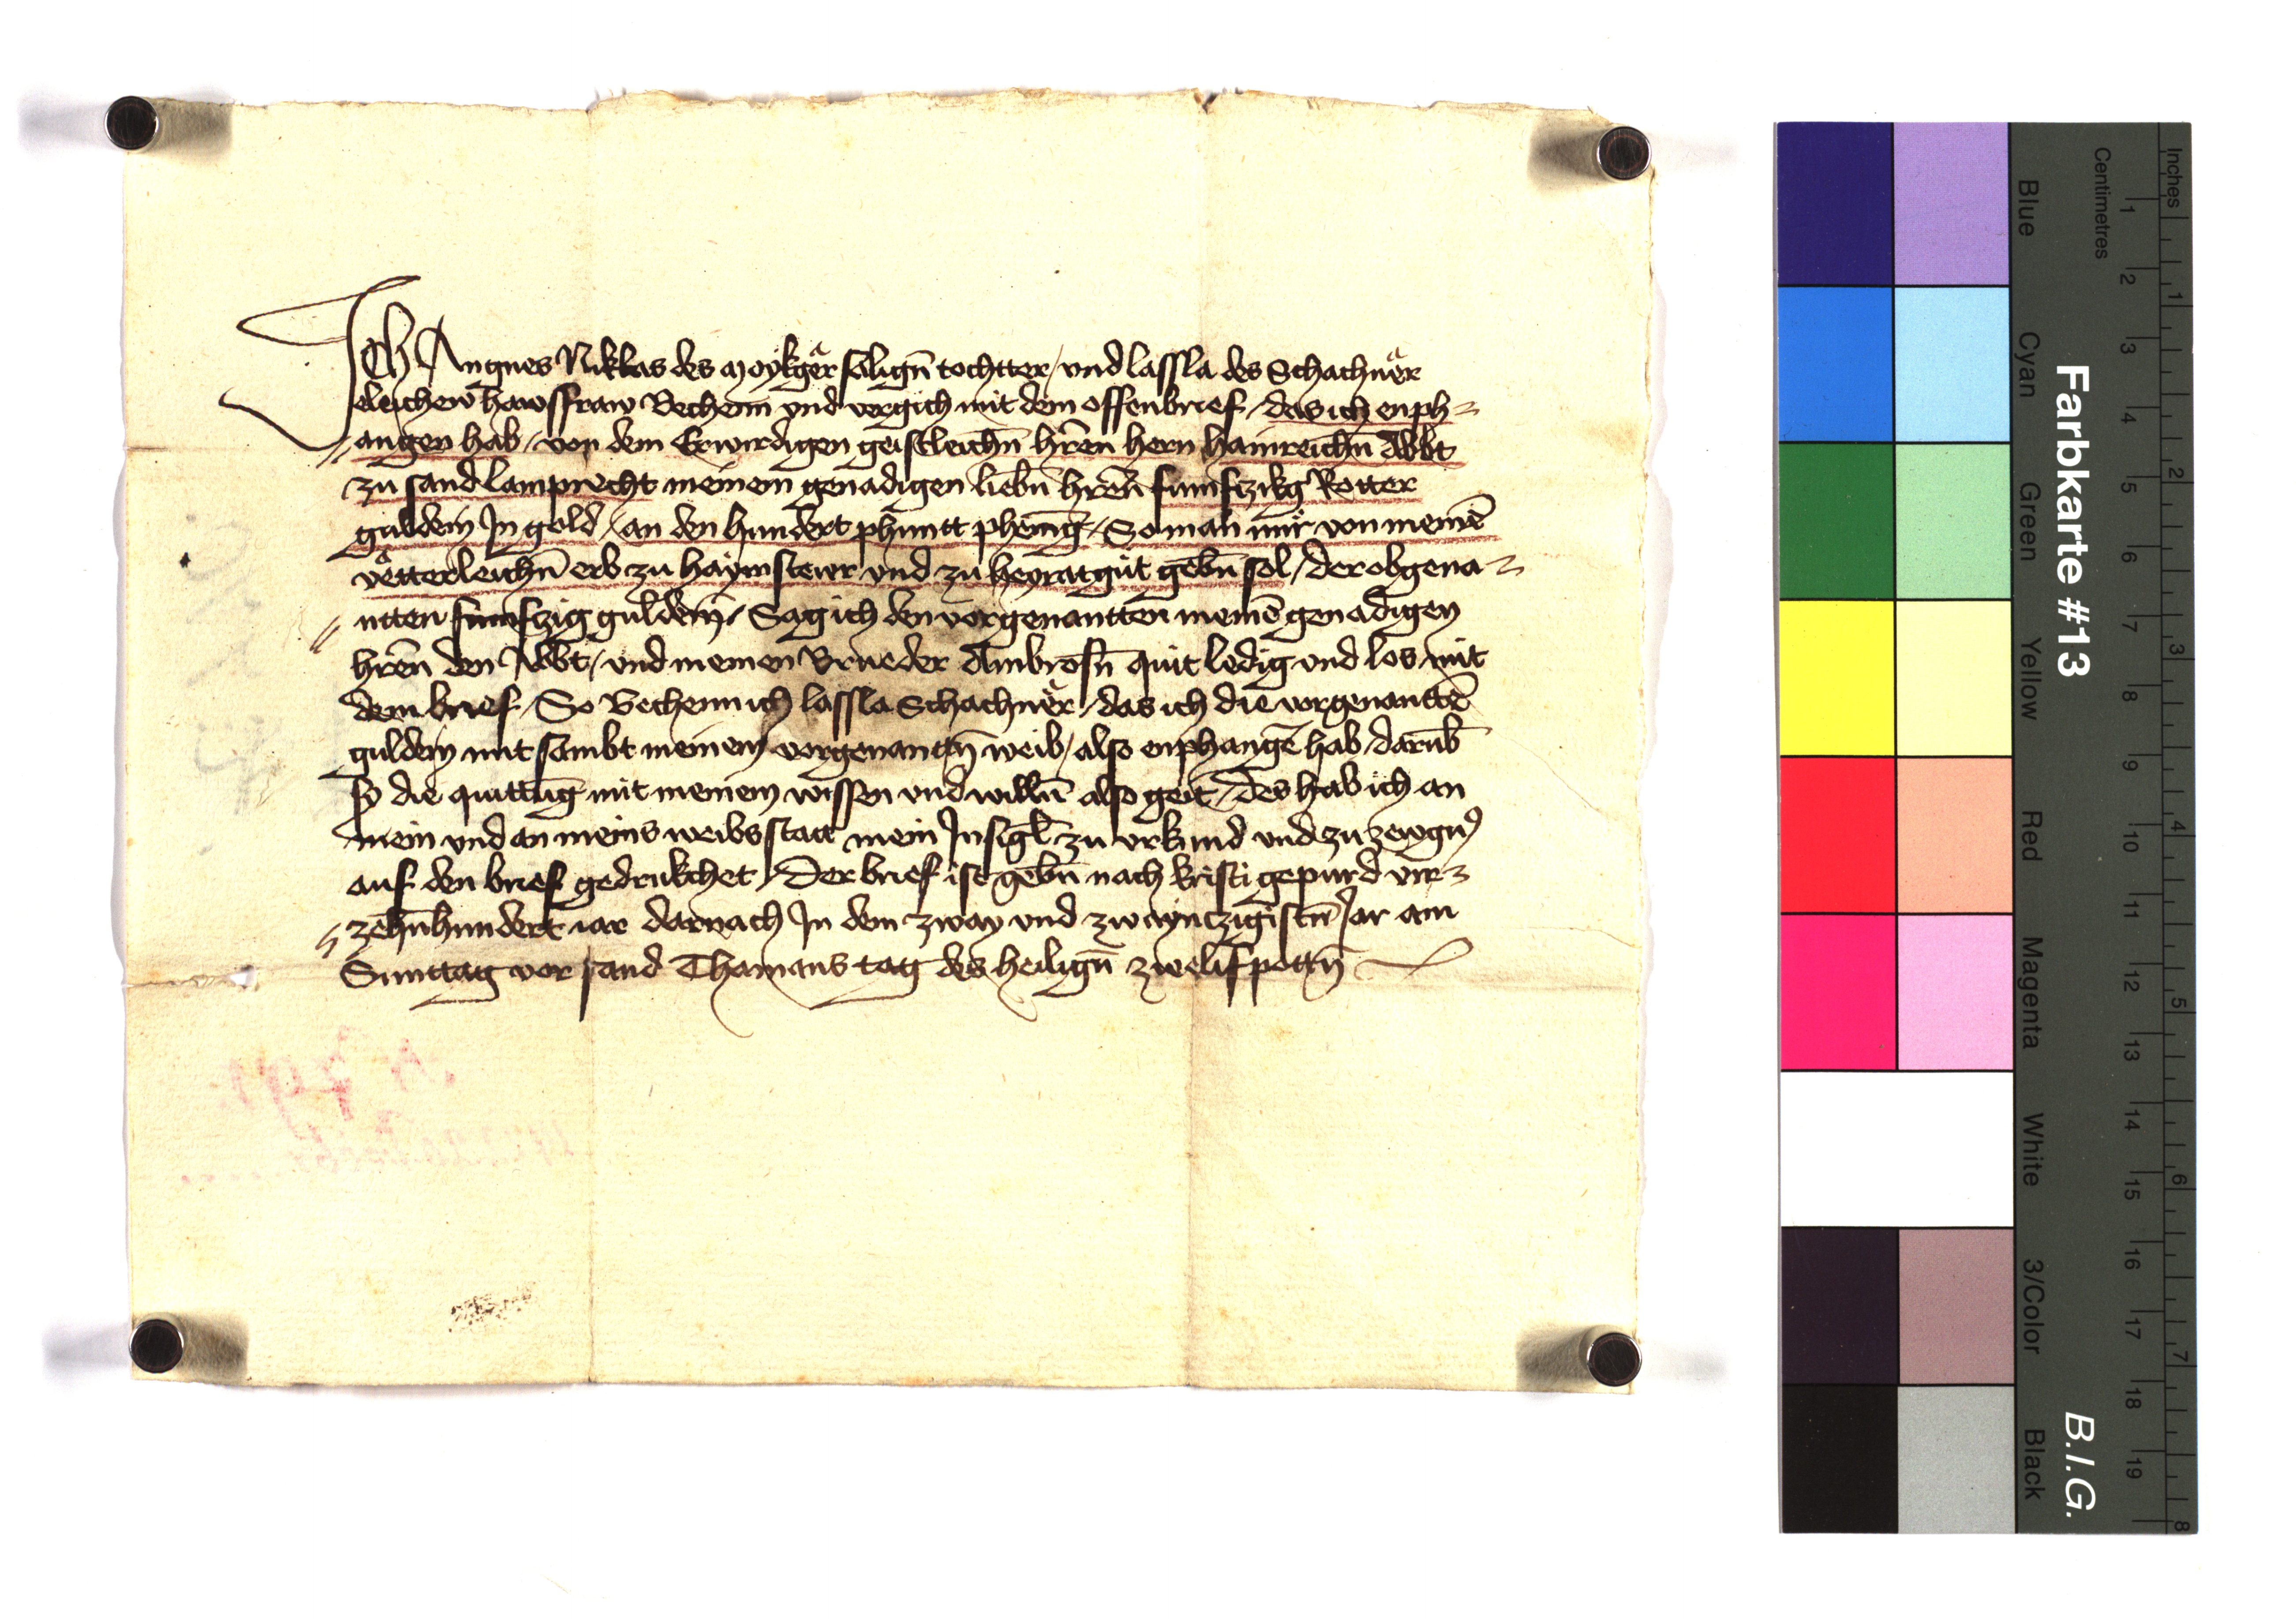 Ich Angnes Niklas des Moykgeͣr saligñ tochtter / und lassla des Schachneͣr
eleichew̄ hawsfraw Bechenn vnd vergich mit dem offenbrief / das ich enph=
angen hab / von dem Erwirdigen geistleichn̄ hr̄en hern hainreichn̄ Abbt
zu sand lamprecht meinem genadigen liebn̄ hr̄en̄ fumfczikg Rotter
guldein In gold / an den hundert phuntt phenīg / So man mir von meinē
veͣtterleichn̄ erb zu haymstewr vnd zu heyratgut gebn̄ sol / der obgena=
ntten fumfczig guldein / Sag ich den vorgenantten meinē genadigen
hrēn den Abbt / vnd meinen Brueder Ambrosn̄ quit ledig vnd los mit
dem brief / So Bechenn ich lassla Schachneͣr / das ich die vorgenanttē
guldein mit sambt meinem vorgenantn̄ weib / also enphangē hab / darūb
sy die quittūg mit meinem wissen vnd willn̄ also geit / des hab ich an
mein vnd an meins weibs statt mein Insigl̄ zu vrkund vnd zu zewgnꝰ
auf den brief gedrukchet / Der brief ist gebn̄ nach kristi gepurd vir=
zehn̄hundert iar darnach In dem zway vnd zwaynczigistn̄ Jar am
Sunttag vor sand Thamans tag des heilign̄ zwelifpottn̄
Farbkarte #13
B.I.G.
Inches
Centimetres
1 2 3 4 5 6 7 8 9 10 11 12 13 14 15 16 17 18 19
1 2 3 4 5 6 7 8
Blue Cyan Green Yellow Red Magenta White 3/Color Black